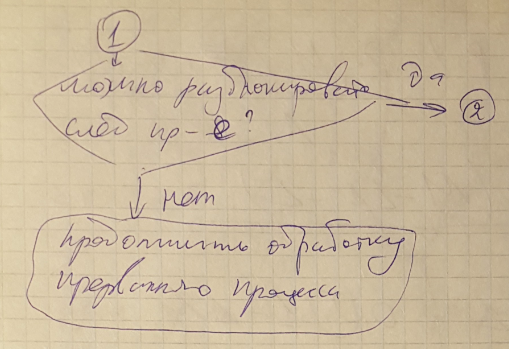 1
можно разблокировать
Да
2
след пр-с?
нет
продолжить обработку
прерванного процесса